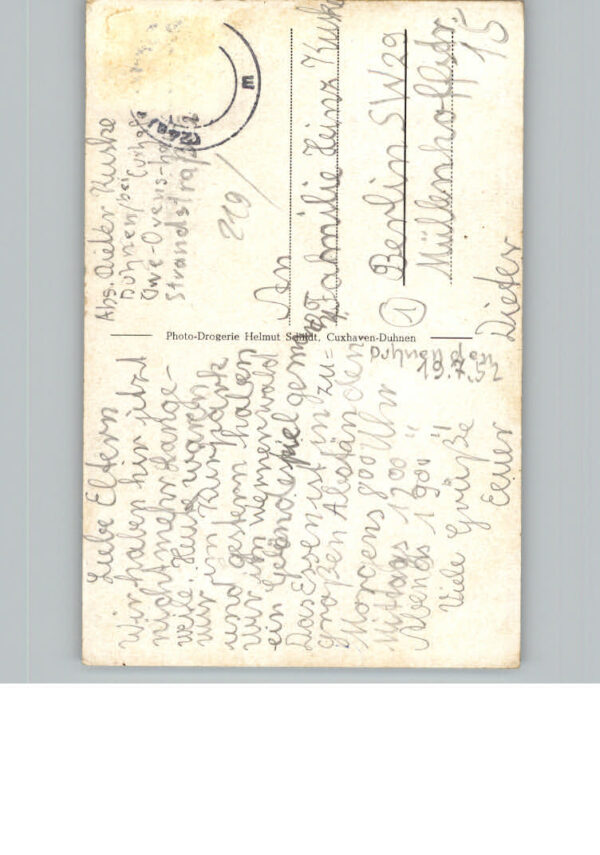 Abs. Dieter Kuske
Duhnen/bei Cuxhafe
Owe-Ovens-
Strandstraße
219
(24a)
m
An
Fahmilie Heinz Kuske
1 Berlin SW29
Müllenhoffstr.
15
Photo-Drogerie Helmut Schildt, Cuxhaven-Duhnen
Duhnen
19.7.52
Liebe Eltern
Wir haben hir jetzt
nicht mehr Lange-
weile. Heut waren
wir im Kurpark
und gestern haben
wir im Wernerwald
ein Geländespiel gemacht
Das Essen ist in zu=
großen Abständen
Morgens 800 Uhr
Mittags 1200 "
Abends 1900 "
Viele Grüße
Eeuer Dieter